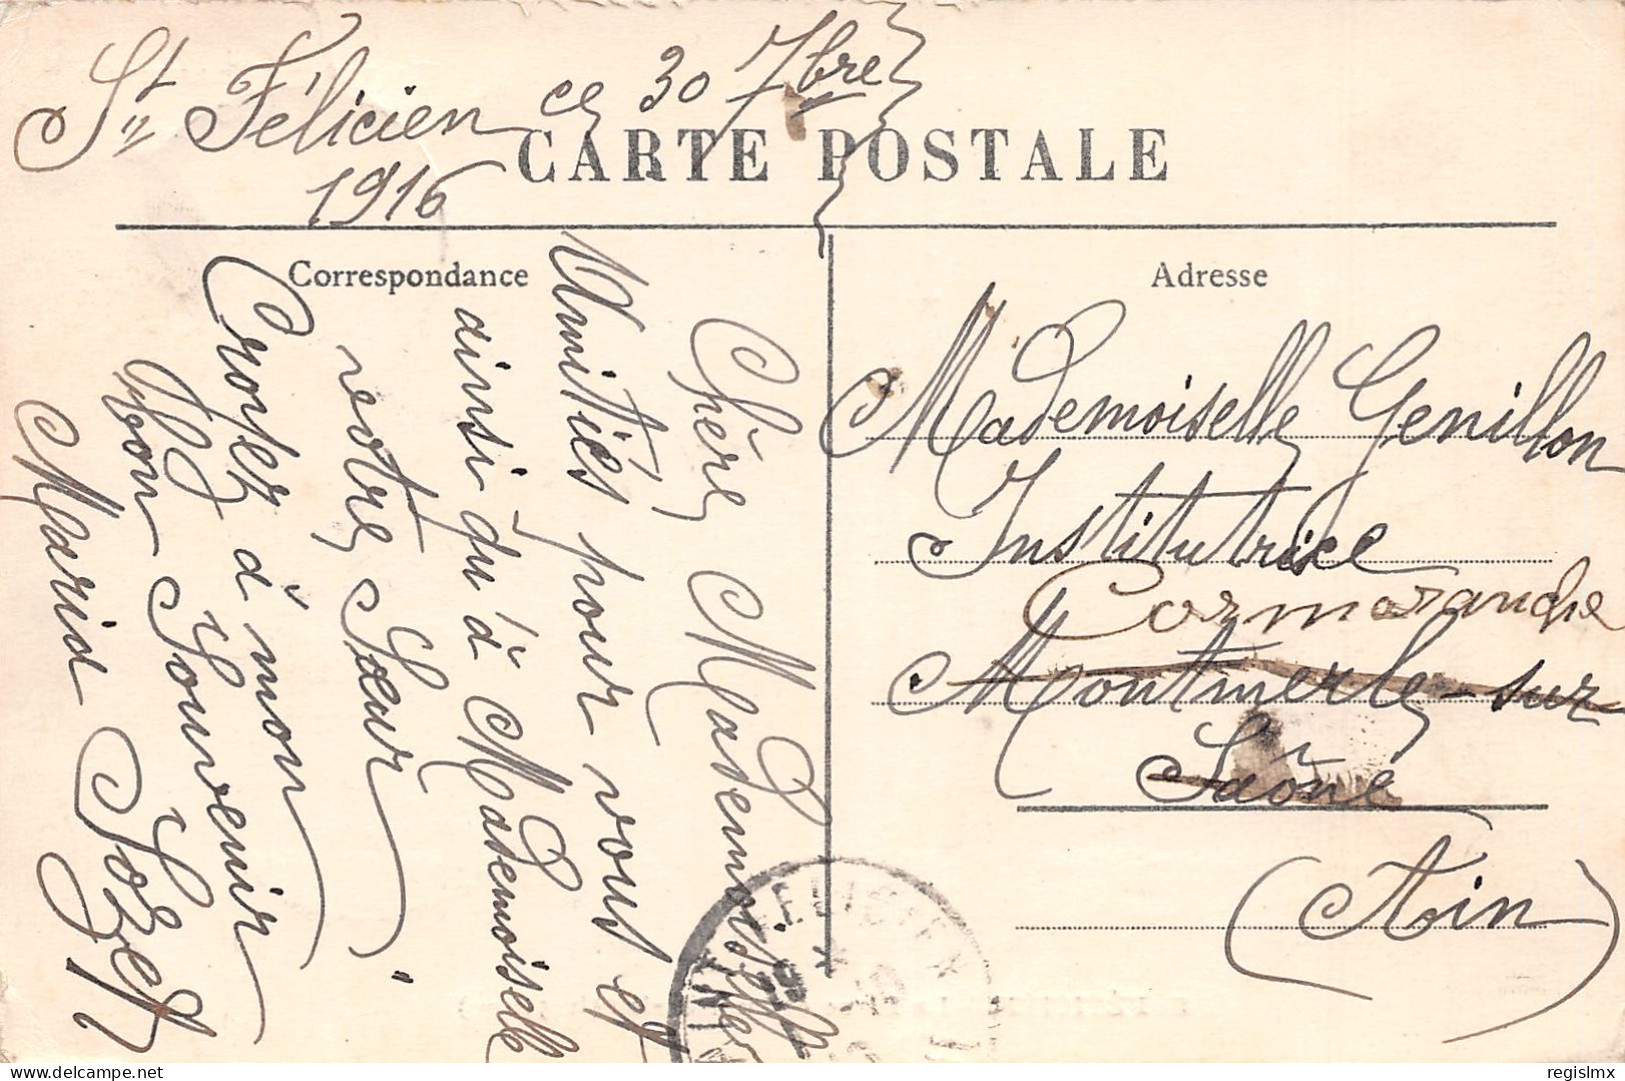 St Félicien ce 30 7bre
1916
CARTE POSTALE
Correspondance
Chère Mademoiselle
Amitiés pour vous et
ainsi qu'à Mademoiselle
votre Sœur.
Croyez à mon
Bon Souvenir
Marid Sozet
Adresse
Mademoiselle Genillon
Institutrice
Cormoranche
Montmerle-sur
Saône
(Ain)
delcampe.net
regislmx